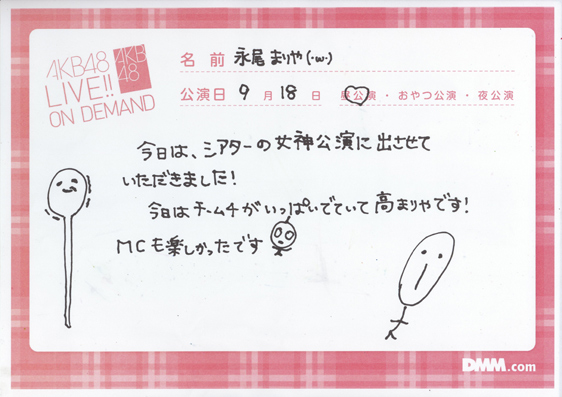 AKB48
LIVE!!
ON DEMAND
AKB
48
名 前 永尾まりや(・ω・)
公演日 9 月 18 日 昼公演・おやつ公演・夜公演
今日は、シアターの女神公演に出させて
いただきました!
今日はチーム4がいっぱいでていて高まりやです!
MCも楽しかったです
DMM.com